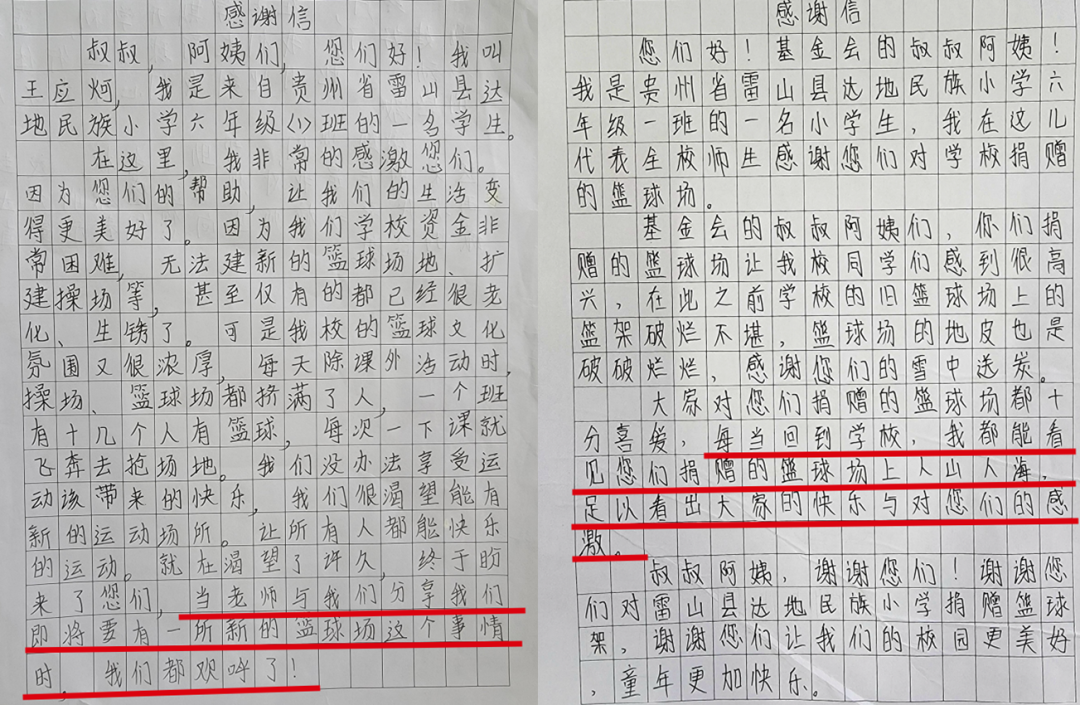 感谢信
叔叔，阿姨们，您们好！我叫
王应炯，我是来自贵州省雷山县达
地民族小学六年级(1)班的一名学生。
在这里，我非常的感激您们。
因为您们的帮助，让我们的生活变
得更美好了。因为我们学校资金非
常困难，无法建新的篮球场地、扩
建操场等，甚至仅有的都已经很老
化、生锈了。可是我校的篮球文化
氛围又很浓厚，每天除课外活动时，
操场、篮球场都挤满了人，一个班
有十几个人有篮球，每次一下课就
飞奔去抢场地。我们没办法享受运
动该带来的快乐，我们很渴望能有
新的运动场所。让所有人都能快乐
的运动。就在渴望了许久，终于盼
来了您们，当老师与我们分享我们
即将要有一所新的篮球场这个事情
时，我们都欢呼了！
感谢信
您们好！基金会的叔叔阿姨！
我是贵州省雷山县达地民族小学六
年级一班的一名小学生，我在这儿
代表全校师生感谢您们对学校捐赠
的篮球场。
基金会的叔叔阿姨们，你们捐
赠的篮球场让我校同学们感到很高
兴，在此之前学校的旧篮球场上的
篮架破烂不堪，篮球场的地皮也是
破破烂烂，感谢您们的雪中送炭。
大家对您们捐赠的篮球场都十
分喜爱，每当回到学校，我都能看
见您们捐赠的篮球场上人山人海，
足以看出大家的快乐与对您们的感
激。
叔叔阿姨，谢谢您们！谢谢您
们对雷山县达地民族小学捐赠篮球
架，谢谢您们让我们的校园更美好
，童年更加快乐。